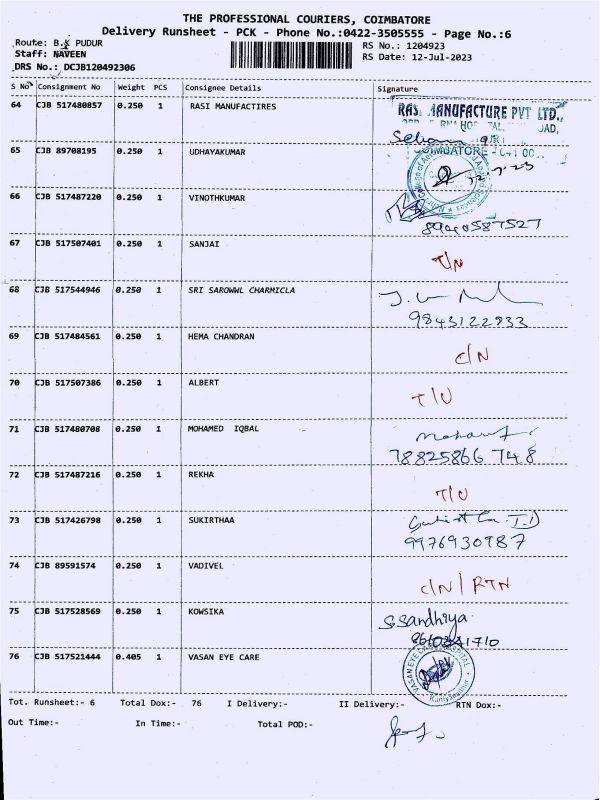 THE PROFESSIONAL COURIERS, COIMBATORE
Delivery Runsheet - PCK - Phone No.:0422-3505555 - Page No.:6
Route: B.K PUDUR
RS No.: 1204923
Staff: NAVEEN
RS Date: 12-Jul-2023
DRS No.: DCJB120492306
S No Consignment No Weight PCS Consignee Details Signature
64 CJB 517480857 0.250 1 RASI MANUFACTIRES
MANUFACTURE PVT LTD.,
65 CJB 89708195 0.250 1 UDHAYAKUMAR
COIMBATORE
66 CJB 517487220 0.250 1 VINOTHKUMAR
67 CJB 517507401 0.250 1 SANJAI
T/N
68 CJB 517544946 0.250 1 SRI SAROWWL CHARMICLA
9843122933
69 CJB 517484561 0.250 1 HEMA CHANDRAN
C/N
70 CJB 517507386 0.250 1 ALBERT
T/U
71 CJB 517480708 0.250 1 MOHAMED IQBAL
78825866 748
72 CJB 517487216 0.250 1 REKHA
T/U
73 CJB 517426798 0.250 1 SUKIRTHAA
9976930987
74 CJB 89591574 0.250 1 VADIVEL
C/N / RTN
75 CJB 517528569 0.250 1 KOWSIKA
S.Sandhiya
76 CJB 517521444 0.405 1 VASAN EYE CARE
VASAN EYE CARE HOSPITAL
Tot. Runsheet:- 6 Total Dox:- 76 I Delivery:- II Delivery:- RTN Dox:-
Out Time:- In Time:- Total POD:-